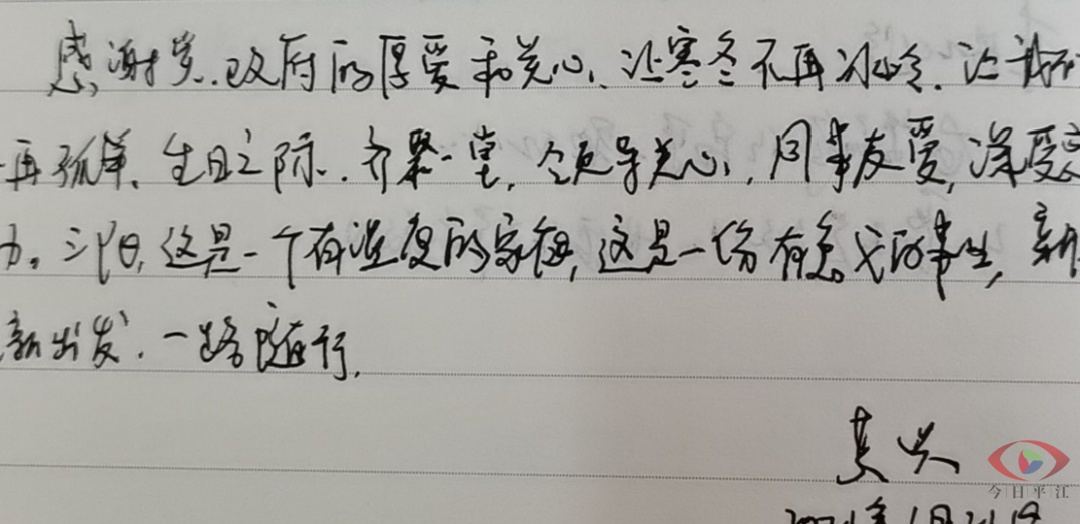 感谢党、政府的厚爱和关心、让寒冬不再冰冷、让我不
再孤单、生日之际、齐聚一堂，领导关心，同事友爱，深受
力。三阳，这是一个有温度的家庭，这是一份有意义的事业，新
新出发、一路随行。
今日平江